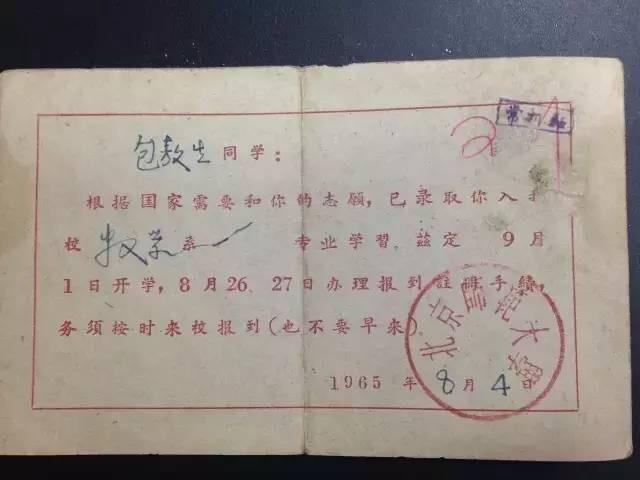 包敖生同学：
根据国家需要和你的志愿，已录取你入我
校 数学系 专业学習．茲定 9月
1日开学，8月26、27日办理报到註册手續，
务须按时来校报到（也不要早来）
1965 年 8 月 4 日
北京 大學